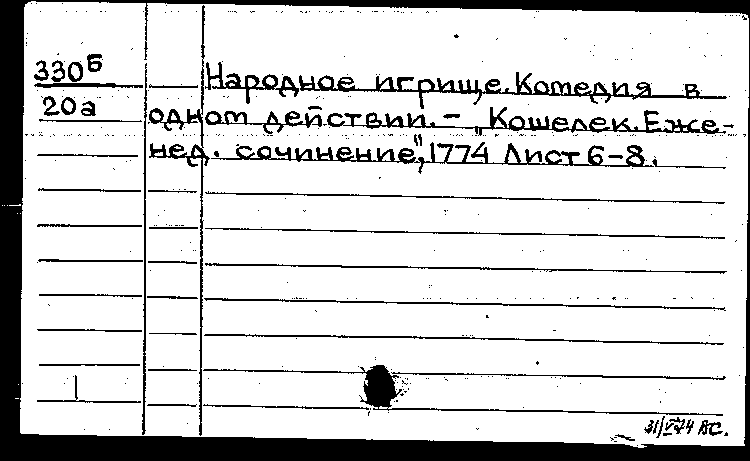 330Б Народное игрище. Комедия в
20а одном действии. – „Кошелек. Еже-
нед. сочинение", 1774 Лист 6–8.
31/V 74 АС.